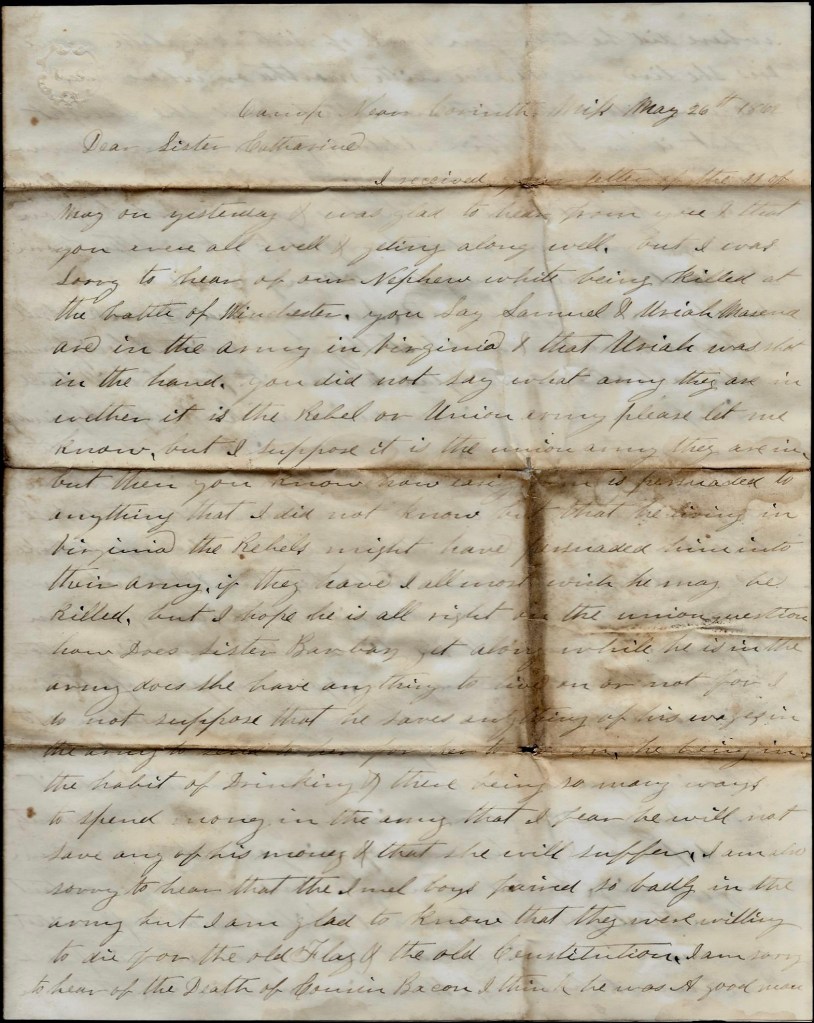 Camp Near Corinth Miss May 26th
Dear Sister Catharine
I received your letter of the 11 of
May on yesterday & was glad to hear from you & that
you were all well & geting along well. but I was
Sorry to hear of our Nephew white being Killed at
the battle of Winchester. you Say Samuel & Uriah
are in the army in Virginia & that Uriah was shot
in the hand. you did not say what army they are in
wether it is the Rebel or Union army please let me
know. but I suppose it is the union army they are in.
but then you know how easy is persuaded to
anything that I did not know but that he living in
Virginia the Rebels might have persuaded him into
their army. if they have I allmost wish he may be
Killed. but I hope he is all right on the union question
how Does Sister get along while he is in the
army does she have anything to live on or not for I
do not suppose that he saves anything of his wages in
the army to send to her for her to live on. he being in
the habit of Drinking & there being so many ways
to spend money in the army that I fear he will not
save any of his money & that she will suffer. I am also
sorry to hear that the boys faired so badly in the
army but I am glad to know that they were willing
to die for the old Flag & the old Constitution. I am sorry
to hear of the Death of Cousin Bacon I think he was A good man